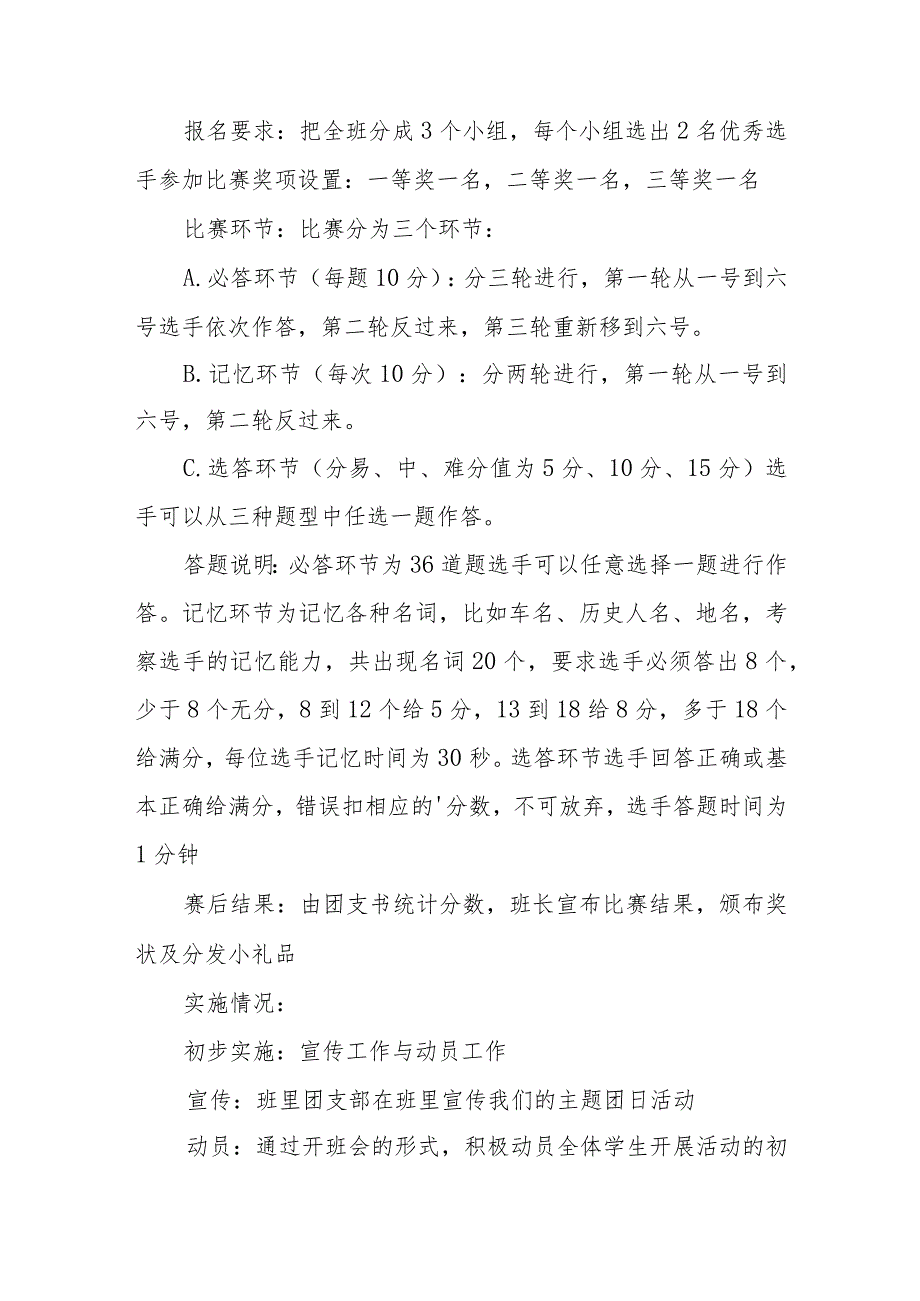 报名要求：把全班分成3个小组，每个小组选出2名优秀选
手参加比赛奖项设置：一等奖一名，二等奖一名，三等奖一名
比赛环节：比赛分为三个环节：
A.必答环节（每题10分）：分三轮进行，第一轮从一号到六
号选手依次作答，第二轮反过来，第三轮重新移到六号。
B.记忆环节（每次10分）：分两轮进行，第一轮从一号到
六号，第二轮反过来。
C.选答环节（分易、中、难分值为5分、10分、15分）选
手可以从三种题型中任选一题作答。
答题说明：必答环节为36道题选手可以任意选择一题进行作
答。记忆环节为记忆各种名词，比如车名、历史人名、地名，考
察选手的记忆能力，共出现名词20个，要求选手必须答出8个，
少于8个无分，8到12个给5分，13到18给8分，多于18个
给满分，每位选手记忆时间为30秒。选答环节选手回答正确或基
本正确给满分，错误扣相应的'分数，不可放弃，选手答题时间为
1分钟
赛后结果：由团支书统计分数，班长宣布比赛结果，颁布奖
状及分发小礼品
实施情况：
初步实施：宣传工作与动员工作
宣传：班里团支部在班里宣传我们的主题团日活动
动员：通过开班会的形式，积极动员全体学生开展活动的初